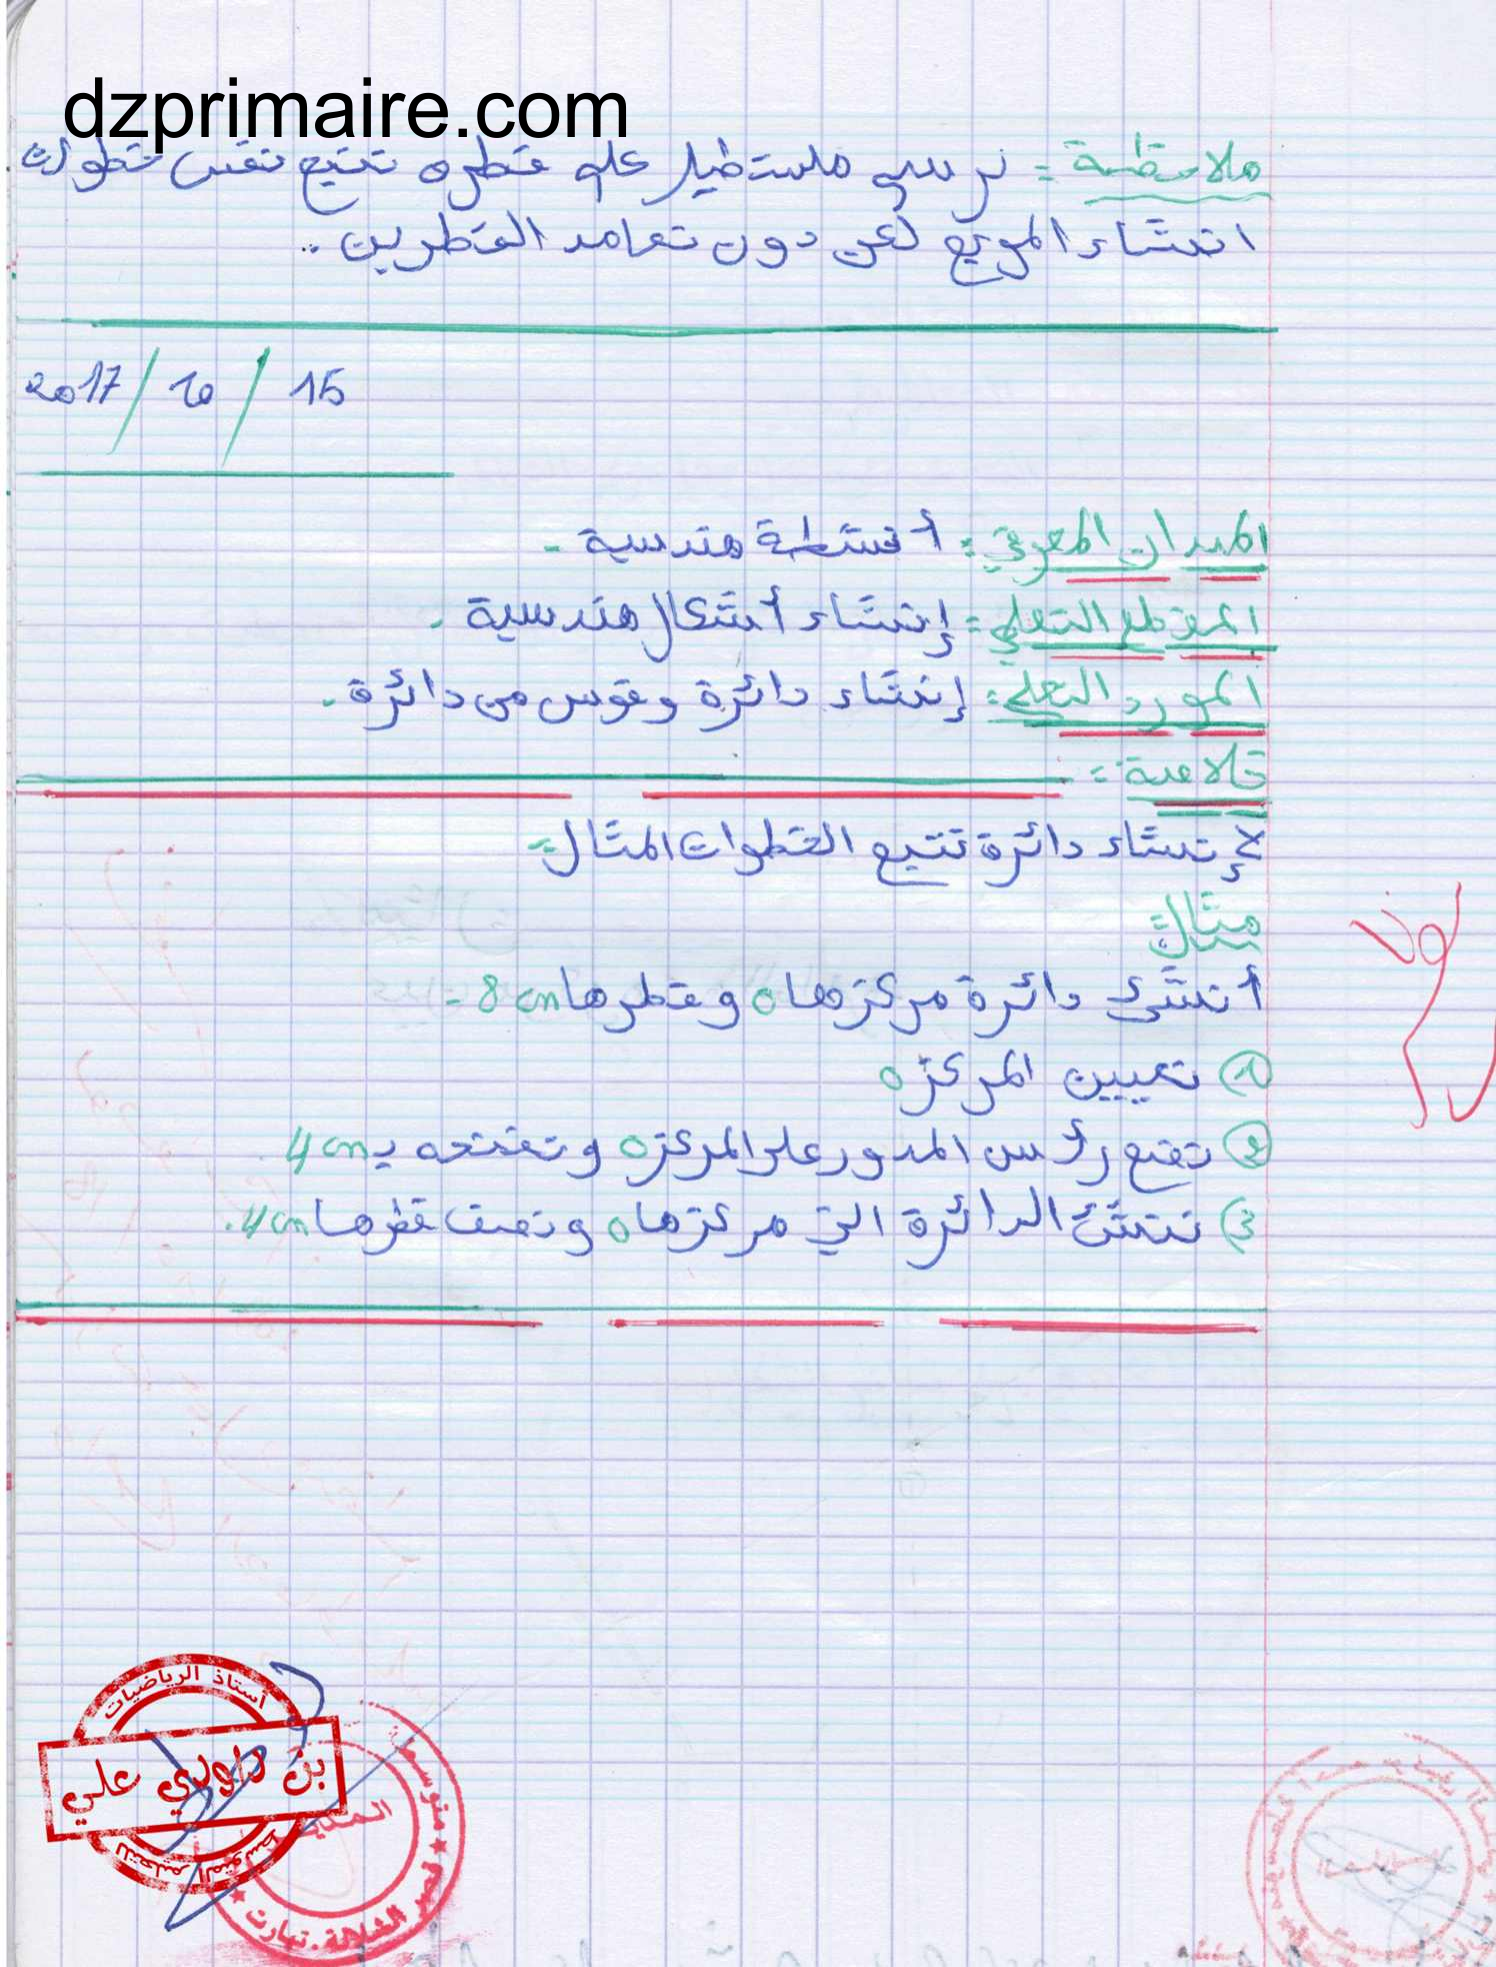 dzprimaire.com
ملاحظة: نرسم مستطيل علم قطره نتبع نفس خطوات
انشاء المربع لكن دون تعامد القطرين..
2017 / 10 / 15
الميدان المعرفي: أنشطة هندسية -
المقطع التعلمي: إنشاء أشكال هندسية.
المورد التعلمي: إنشاء دائرة وقوس من دائرة.
خلاصة:
لإنشاء دائرة نتبع الخطوات المثال:
مثال:
أنشئ دائرة مركزها o و قطرها 8 cm -
① تعيين المركز o
② نضع رأس المدور على المركز o و نفتحه بـ 4 cm.
③ ننشئ الدائرة التي مركزها o و نصف قطرها 4 cm.
أستاذ الرياضيات
بن الولدي علي
للتعليم المتوسط
متوسطة
الشلالة. تيارت